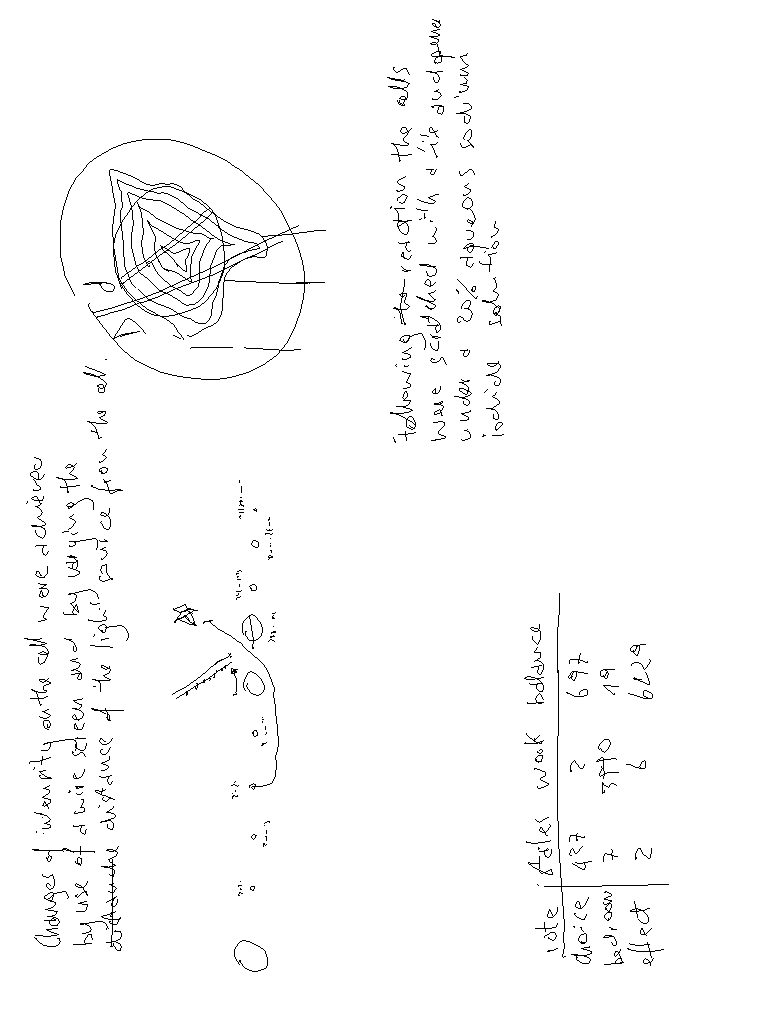 Changes of intensity on the cell were achieved
by use of a wire screen and by varying the
distance of the light source from the cell.
d
Following to reaction the cells
were scratched with a die and opened
under a 20% aqueous sodium
iodide solution
rate Adler work balance
choice 427 2 697
bedroom 7 3990 19
effect 2 6 6229